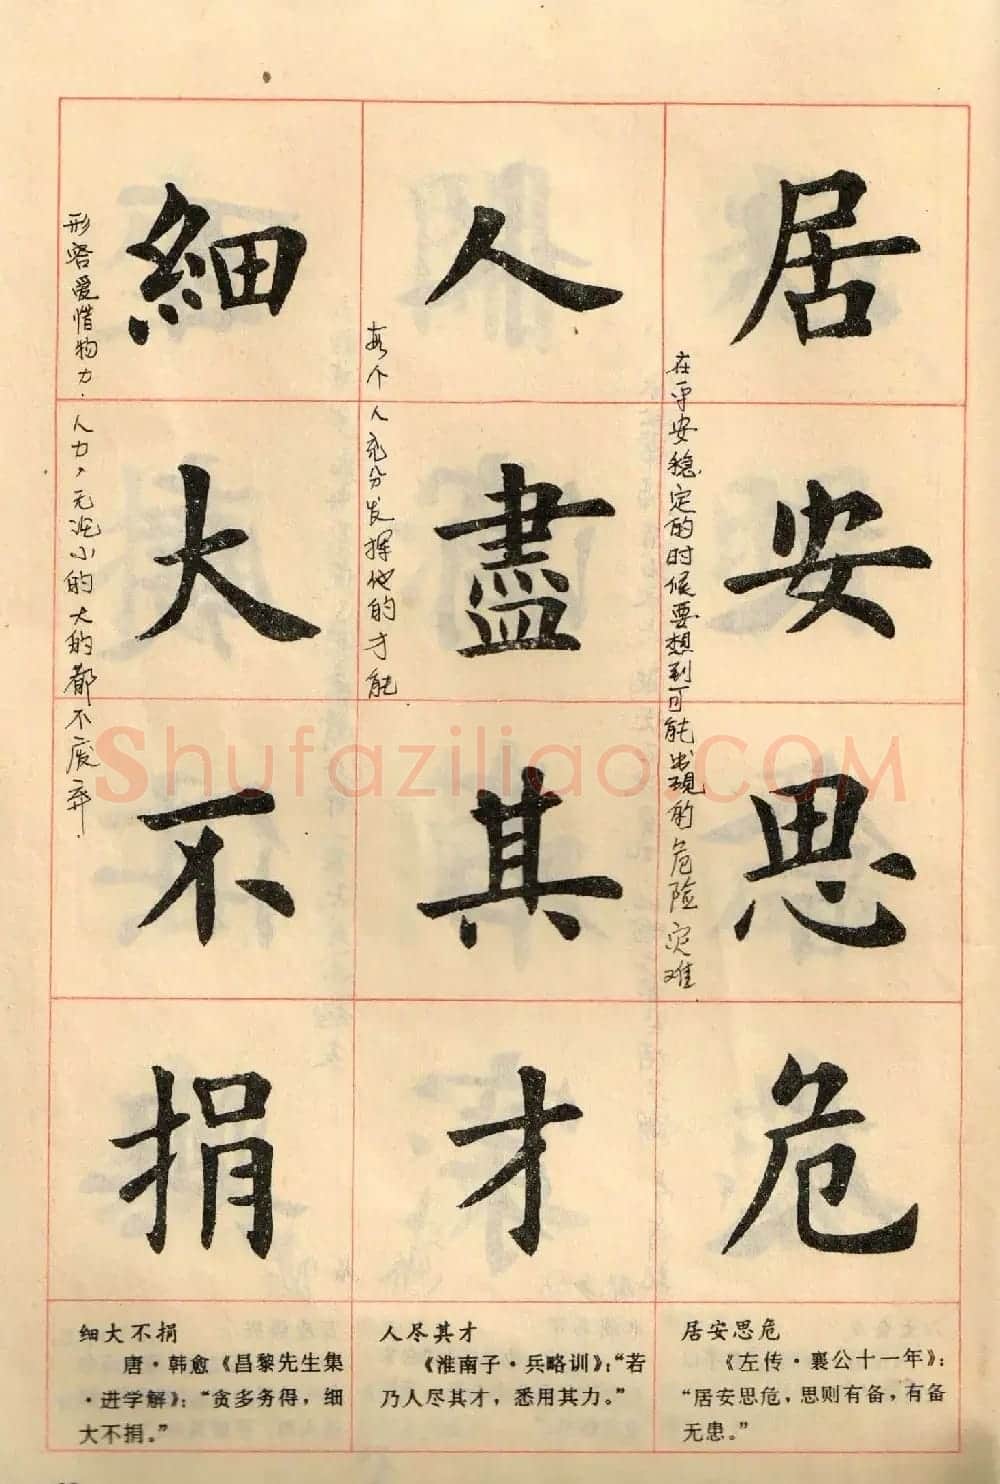 居安思危
在平安稳定的时候要想到可能出现的危险灾难
人盡其才
每个人充分发挥他的才能
細大不捐
形容爱惜物力.人力,无论小的大的都不废弃.
居安思危
《左传·襄公十一年》:
“居安思危,思则有备,有备
无患。”
人尽其才
《淮南子·兵略训》:“若
乃人尽其才,悉用其力。”
细大不捐
唐·韩愈《昌黎先生集
·进学解》:“贪多务得,细
大不捐。”
Shufaziliao.COM